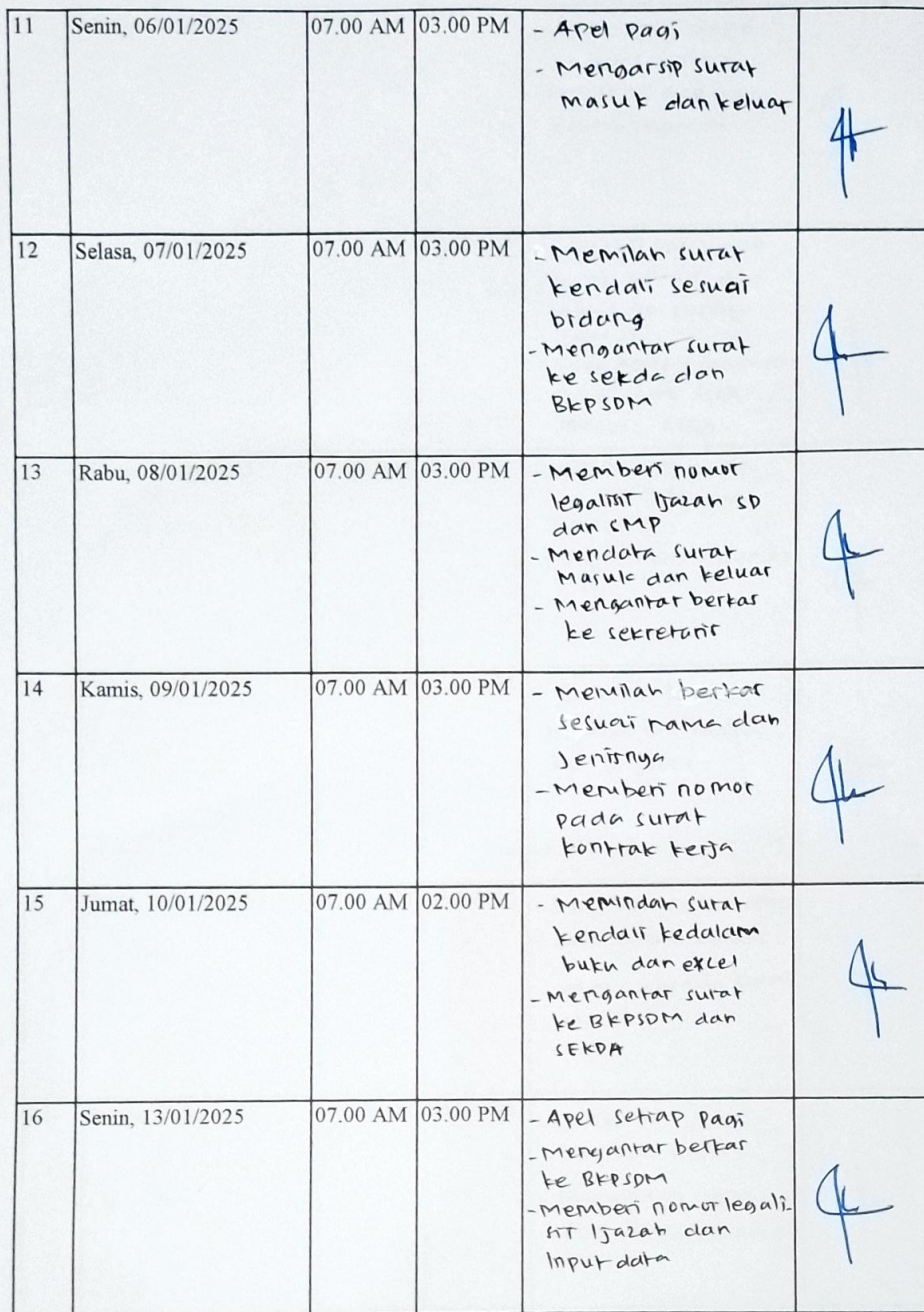 11 Senin, 06/01/2025 07.00 AM 03.00 PM - Apel pagi
- Mengarsip surat
masuk dan keluar
12 Selasa, 07/01/2025 07.00 AM 03.00 PM - Memilah surat
kendali sesuai
bidang
- Mengantar surat
ke sekda dan
BKPSDM
13 Rabu, 08/01/2025 07.00 AM 03.00 PM - Memberi nomor
legalisir Ijazah SD
dan SMP
- Mendata surat
Masuk dan keluar
- Mengantar berkas
ke sekretaris
14 Kamis, 09/01/2025 07.00 AM 03.00 PM - Memilah berkas
sesuai nama dan
Jenisnya
- Memberi nomor
pada surat
kontrak kerja
15 Jumat, 10/01/2025 07.00 AM 02.00 PM - Memindah surat
kendali kedalam
buku dan excel
- Mengantar surat
ke BKPSDM dan
SEKDA
16 Senin, 13/01/2025 07.00 AM 03.00 PM - Apel setiap pagi
- Mengantar berkas
ke BKPSDM
- Memberi nomor legali-
sir Ijazah dan
Input data